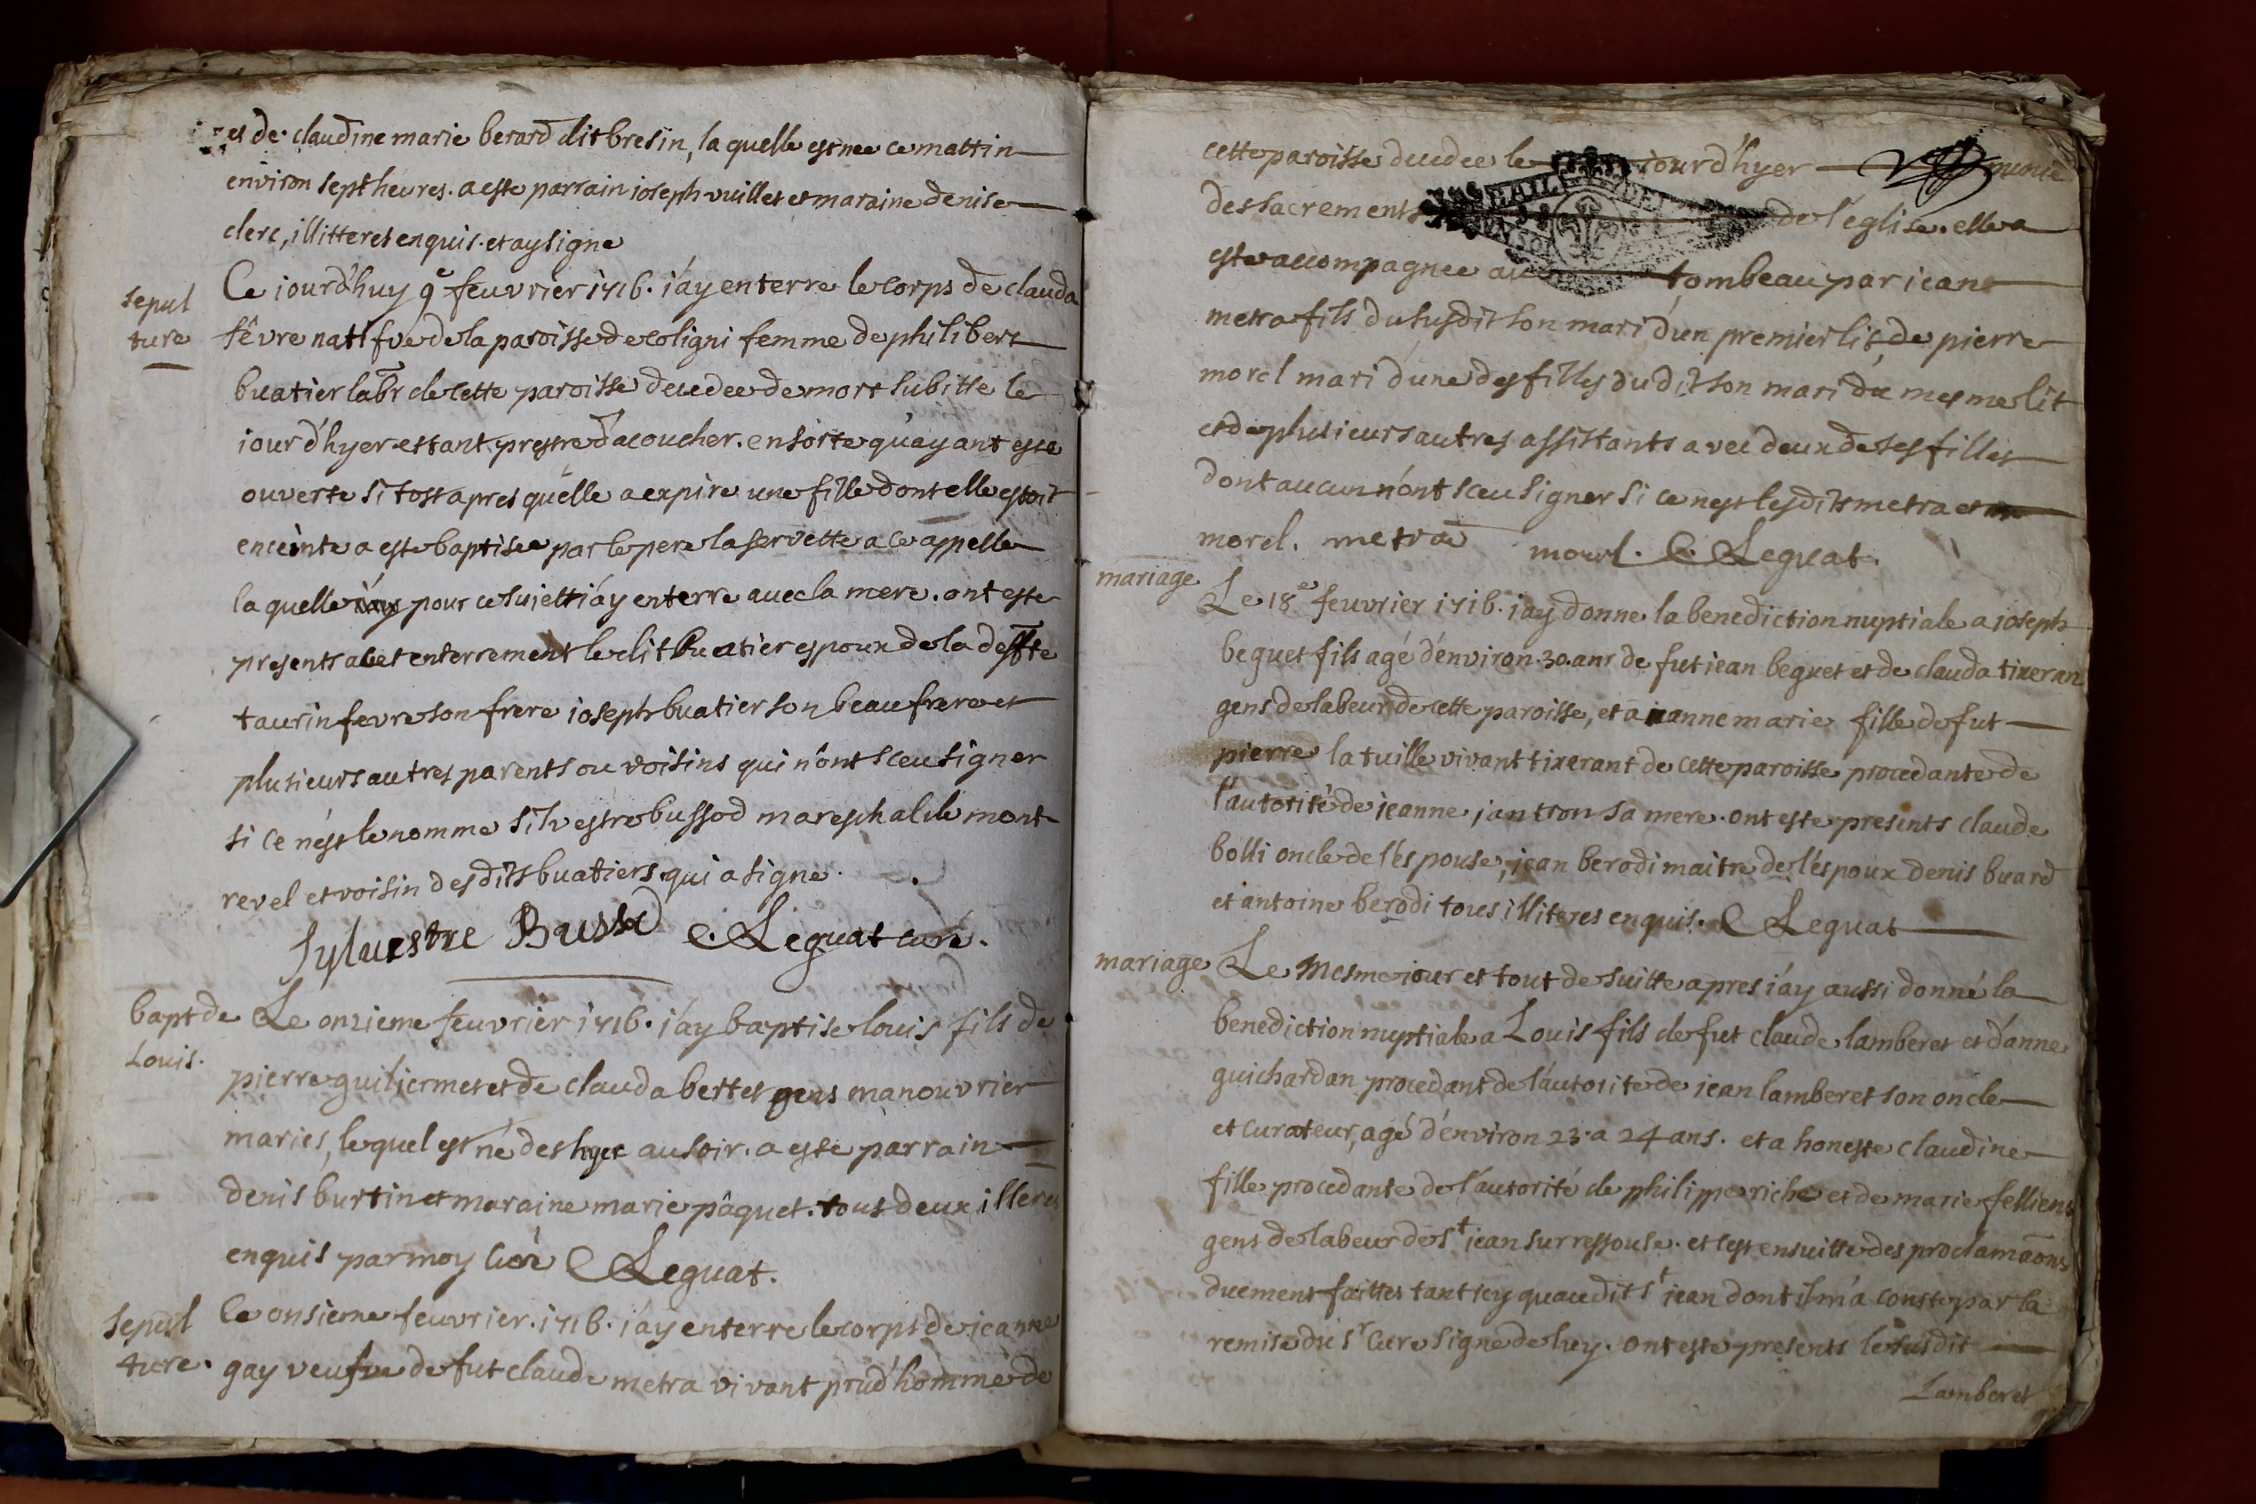 et de claudine marie berard dit bresin, la quelle est nee ce mattin
environ sept heures. a este parrain ioseph vuillet et maraine denise
clerc, illitteres enquis. et ay signe
sepul
ture
Ce iourd'huy 9e feuvrier 1716. i'ay enterre le corps de clauda
fêvre natifve de la paroisse de coligni femme de philibert
buatier labr de cette paroisse decedee de mort subitte le
iour d'hyer estant preste d'acoucher. en sorte qu'ayant este
ouverte si tost apres qu'elle a expire une fille dont elle estoit
enceinte a este baptisee par le pere laservette a ce appelle
la quelle pour ce sujett i'ay enterre avec la mere. ont este
presents a cet enterrement le dit Buatier espoux de la deffte
taurin fevre son frere ioseph buatier son beaufrere et
plusieurs autres parents ou voisins qui n'ont sceu signer
si ce n'est le nomme silvestre bussod mareschal de mont
revel et voisin desdits buatiers qui a signe.
Sylvestre Bussod C. Leguat curé.
bapt de
Louis.
Le onzieme feuvrier 1716. i'ay baptise louis fils de
pierre guiliermet et de clauda bertet gens manouvrier
maries, lequel est né des hyer au soir. a este parrain
denis burtin et maraine marie pâquet. tous deux illeres
enquis par moy curé C Leguat.
sepul
ture.
Ce onsieme feuvrier. 1716. i'ay enterre le corps de jeanne
gay veufve de fut claude metra vivant prud'homme de
cette paroisse decedee le iourd'hyer munie
des sacrements de l'église. elle a
este accompagnee au tombeau par jean
metra fils du susdit son mari d'un premier lit, de pierre
morel mari d'une des filles du dit son mari du mesme lit
et de plusieurs autres assistants avec deux de ses filles
dont aucun n'ont sceu signer si ce n'est lesdits metra et
morel. metra morel. C. Leguat.
mariage
Le 18e feuvrier 1716. i'ay donne la benediction nuptiale a ioseph
beguet fils agé d'environ 30. ans de fut jean beguet et de clauda tixeran
gens de labeur de cette paroisse, et a jeanne marie fille de fut
pierre la tuille vivant tixerant de cette paroisse procedante de
l'autorité de jeanne jantson sa mere. ont este presents claude
bolli oncle de l'espouse, jean berodi maitre de l'espoux denis buard
et antoine berodi tous illiteres enquis. C Leguat
mariage
Le mesme iour et tout de suitte apres i'ay aussi donné la
benediction nuptiale a Louis fils de fut claude lamberet et d'anne
guichardan procedant de l'autorite de jean lamberet son oncle
et curateur, agé d'environ 23. a 24 ans. et a honeste claudine
fille procedante de l'autorité de philippe riche et de marie felliens
gens de labeur de st jean sur ressouse. et c'est ensuitte des proclamaons
duement faittes tant icy qu'audit st jean dont il m'a conste par la
remise du sr curé signe de luy. ont este presents le susdit
Lamberet